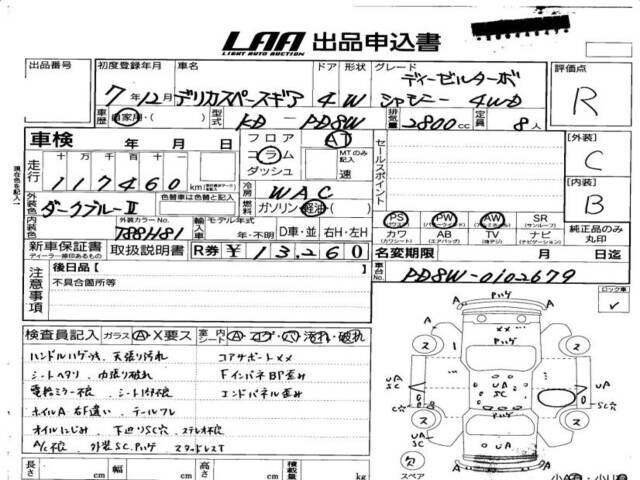 LAA 出品申込書
LIGHT AUTO AUCTION
出品番号 初度登録年月 車名 ドア 形状 グレード 評価点
7年12月 デリカスペースギア 4 W ディーゼルターボ シャモニー 4WD R
車歴 自家用・( ) 型式 KD-PD8W 排気量 2800cc 定員 8人
車検 年 月 日 フロア AT 【外装】
現在色を記入
走行 十 万 千 百 十 一 コラム MTのみ記入 C
117460 km ダッシュ 速 セールスポイント
外装色 ダークブルーII 色替車は色替色 冷房 WAC 【内装】
燃料 ガソリン・軽油( ) B
内装色 外装カラーNo. T88H81 輸入車 モデル年式 年・不明 D車・並 右H・左H
PS PW AW SR
(パワステ) (パワーウィンドウ) (サンルーフ)
カワ AB TV ナビ 純正品のみ丸印
(カワシート) (エアバッグ) (ナビゲーション)
新車保証書 取扱説明書 R券 ¥13,260 名変期限 月 日迄
ディーラー捺印あるもの
車台No. PD8W-0102679
注意事項 後日品【 】
不具合箇所等
ロック車
検査員記入 ガラス A・X要ス 室内 シート
ハンドルハゲ 天張り汚れ コアサポートメメ
シートヘタリ 内張り破れ FインパネBP歪み
電格ミラー不良 エンドパネル歪み
ホイルA 右F違い
オイルにじみ 下廻りSC穴 ステレオ不良
A/C不良 外装SC.Pハゲ
A Pハゲ A
ス ス
UA SC UA SC
ス ス
欠
スペア
長さ cm 幅 cm 高さ cm 積載量 kg